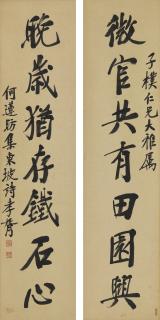 微官共有田園興
子樸仁兄大雅屬
晚歲猶存鐵石心
集東坡詩孝胥